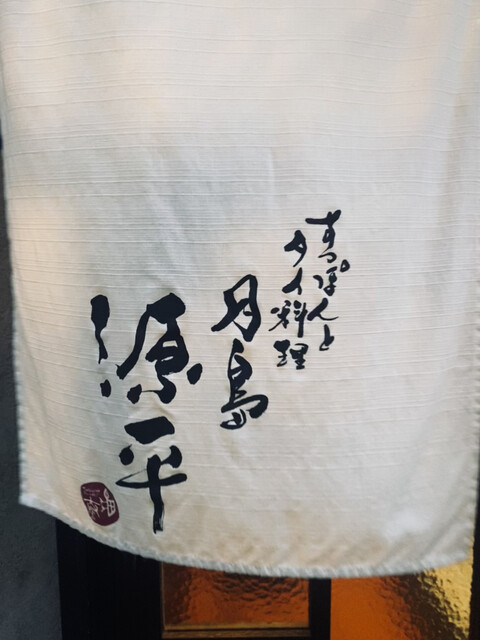 すっぽんと
タイ料理
月島
源平